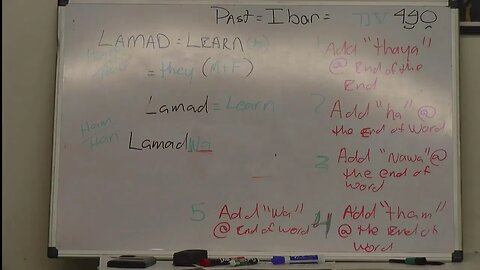 PAST = Ibar =
LAMAD = LEARN
= they (M+F)
Lamad = Learn
Ham
Han
LamadWa
Add "thaya"
@ End of the
End
2 Add "ha" @
the End of Word
3 Add "Nawa"@
the end of
word
4 Add "tham"
@ the End of
word
5 Add "Wa"
@ End of word